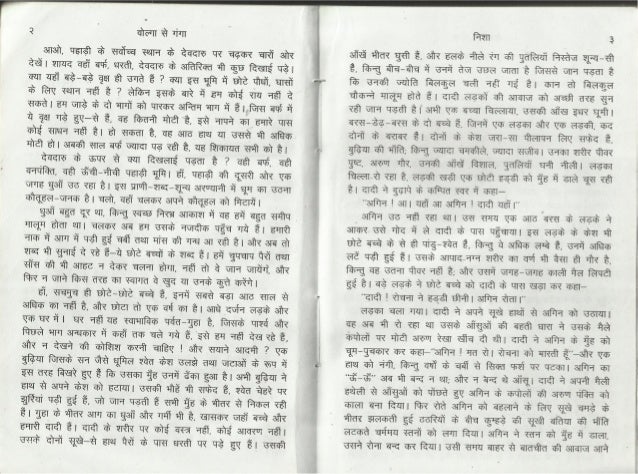 २
वोल्गा से गंगा
आओ, पहाड़ी के सर्वोच्च स्थान के देवदारु पर चढ़कर चारों ओर
देखें। शायद वहाँ बर्फ, धरती, देवदारु के अतिरिक्त भी कुछ दिखाई पड़े।
क्या यहाँ बड़े-बड़े वृक्ष ही उगते हैं ? क्या इस भूमि में छोटे पौधों, घासों
के लिए स्थान नहीं है ? लेकिन इसके बारे में हम कोई राय नहीं दे
सकते। हम जाड़े के दो भागों को पारकर अन्तिम भाग में हैं। जिस बर्फ में
ये वृक्ष गड़े हुए-से हैं, वह कितनी मोटी है, इसे नापने का हमारे पास
कोई साधन नहीं है। हो सकता है, वह आठ हाथ या उससे भी अधिक
मोटी हो। अबकी साल बर्फ ज्यादा पड़ रही है, यह शिकायत सभी को है।
देवदारु के ऊपर से क्या दिखलाई पड़ता है ? वही बर्फ, वही
वनपंक्ति, वही ऊँची-नीची पहाड़ी भूमि। हाँ, पहाड़ी की दूसरी ओर एक
जगह धुआँ उठ रहा है। इस प्राणी-शब्द-शून्य अरण्यानी में धूम का उठना
कौतूहल-जनक है। चलो, वहाँ चलकर अपने कौतूहल को मिटायें।
धुआँ बहुत दूर था, किन्तु स्वच्छ निरभ्र आकाश में वह हमें बहुत समीप
मालूम होता था। चलकर अब हम उसके नजदीक पहुँच गये हैं। हमारी
नाक में आग में पड़ी हुई चर्बी तथा मांस की गन्ध आ रही है। और अब तो
शब्द भी सुनाई दे रहे हैं-ये छोटे बच्चों के शब्द हैं। हमें चुपचाप पैरों तथा
साँस की भी आहट न देकर चलना होगा, नहीं तो वे जान जायेगें, और
फिर न जाने किस तरह का स्वागत वे खुद या उनके कुत्ते करेंगे।
हाँ, सचमुच ही छोटे-छोटे बच्चे हैं, इनमें सबसे बड़ा आठ साल से
अधिक का नहीं है, और छोटा तो एक वर्ष का है। आधे दर्जन लड़के और
एक घर में। घर नहीं यह स्वाभाविक पर्वत-गुहा है, जिसके पार्श्व और
पिछले भाग अन्धकार में कहाँ तक चले गये हैं, इसे हम नहीं देख रहे हैं,
और न देखने की कोशिश करनी चाहिए ! और सयाने आदमी ? एक
बुढ़िया जिसके सन जैसे धूमिल श्वेत केश उलझे तथा जटाओं के रूप में
इस तरह बिखरे हुए हैं कि उसका मुँह उनमें ढँका हुआ है। अभी बुढ़िया ने
हाथ से अपने केश को हटाया। उसकी भौहें भी सफेद हैं, श्वेत चेहरे पर
झुर्रियां पड़ी हुई हैं, जो जान पड़ती हैं सभी मुँह के भीतर से निकल रही
हैं। गुहा के भीतर आग का धुआँ और गर्मी भी है, खासकर जहाँ बच्चे और
हमारी दादी हैं। दादी के शरीर पर कोई वस्त्र नहीं, कोई आवरण नहीं।
उसके दोनों सूखे-से हाथ पैरों के पास धरती पर पड़े हुए हैं। उसकी
निशा
३
आँखें भीतर घुसी हैं, और हलके नीले रंग की पुतलियाँ निस्तेज शून्य-सी
हैं, किन्तु बीच-बीच में उनमें तेज उछल जाता है जिससे जान पड़ता है
कि उनकी ज्योति बिलकुल चली नहीं गई है। कान तो बिलकुल
चौकन्ने मालूम होते हैं। दादी लड़कों की आवाज को अच्छी तरह सुन
रही जान पड़ती है। अभी एक बच्चा चिल्लाया, उसकी आँख इधर घूमी।
बरस-डेढ़-बरस के दो बच्चे हैं, जिनमें एक लड़का और एक लड़की, कद
दोनों के बराबर हैं। दोनों के केश जरा-सा पीलापन लिए सफेद हैं,
बुढ़िया की भाँति, किन्तु ज्यादा चमकीले, ज्यादा सजीव। उनका शरीर पीवर
पुष्ट, अरुण गौर, उनकी आँखें विशाल, पुतलियां घनी नीली। लड़का
चिल्ला रो रहा है, लड़की खड़ी एक छोटी हड्डी को मुँह में डाले चूस रही
है। दादी ने बुढ़ापे के कम्पित स्वर में कहा—
"अगिन ! आ। यहाँ आ अगिन ! दादी यहाँ।"
अगिन उठ नहीं रहा था। उस समय एक आठ बरस के लड़के ने
आकर उसे गोद में ले दादी के पास पहुँचाया। इस लड़के के केश भी
छोटे बच्चे के से ही पांडु-श्वेत हैं, किन्तु वे अधिक लम्बे हैं, उनमें अधिक
लटें पड़ी हुई हैं। उसके आपाद-नग्न शरीर का वर्ण भी वैसा ही गौर है,
किन्तु वह उतना पीवर नहीं है; और उसमें जगह-जगह काली मैल लिपटी
हुई है। बड़े लड़के ने छोटे बच्चे को दादी के पास खड़ा कर कहा—
"दादी ! रोचना ने हड्डी छीनी। अगिन रोता।"
लड़का चला गया। दादी ने अपने सूखे हाथों से अगिन को उठाया।
वह अब भी रो रहा था उसके आँसुओं की बहती धारा ने उसके मैले
कपोलों पर मोटी अरुण रेखा खींच दी थी। दादी ने अगिन के मुँह को
चूम-पुचकार कर कहा—"अगिन ! मत रो। रोचना को मारती हूँ"—और एक
हाथ को नंगी, किन्तु वर्षों के चर्बी से सिक्त फर्श पर पटका। अगिन का
"ऊँ-ऊँ" अब भी बन्द न था; और न बन्द थे आँसू। दादी ने अपनी मैली
हथेली से आँसुओं को पोंछते हुए अगिन के कपोलों की अरुण पंक्ति को
काला बना दिया। फिर रोते अगिन को बहलाने के लिए सूखे चमड़े के
भीतर झलकती हुई ठठरियों के बीच कुम्हड़े की सूखी बतिया की भाँति
लटकते चर्ममय स्तनों को लगा दिया। अगिन ने स्तन को मुँह में डाला,
उसने रोना बन्द कर दिया। उसी समय बाहर से बातचीत की आवाज आने